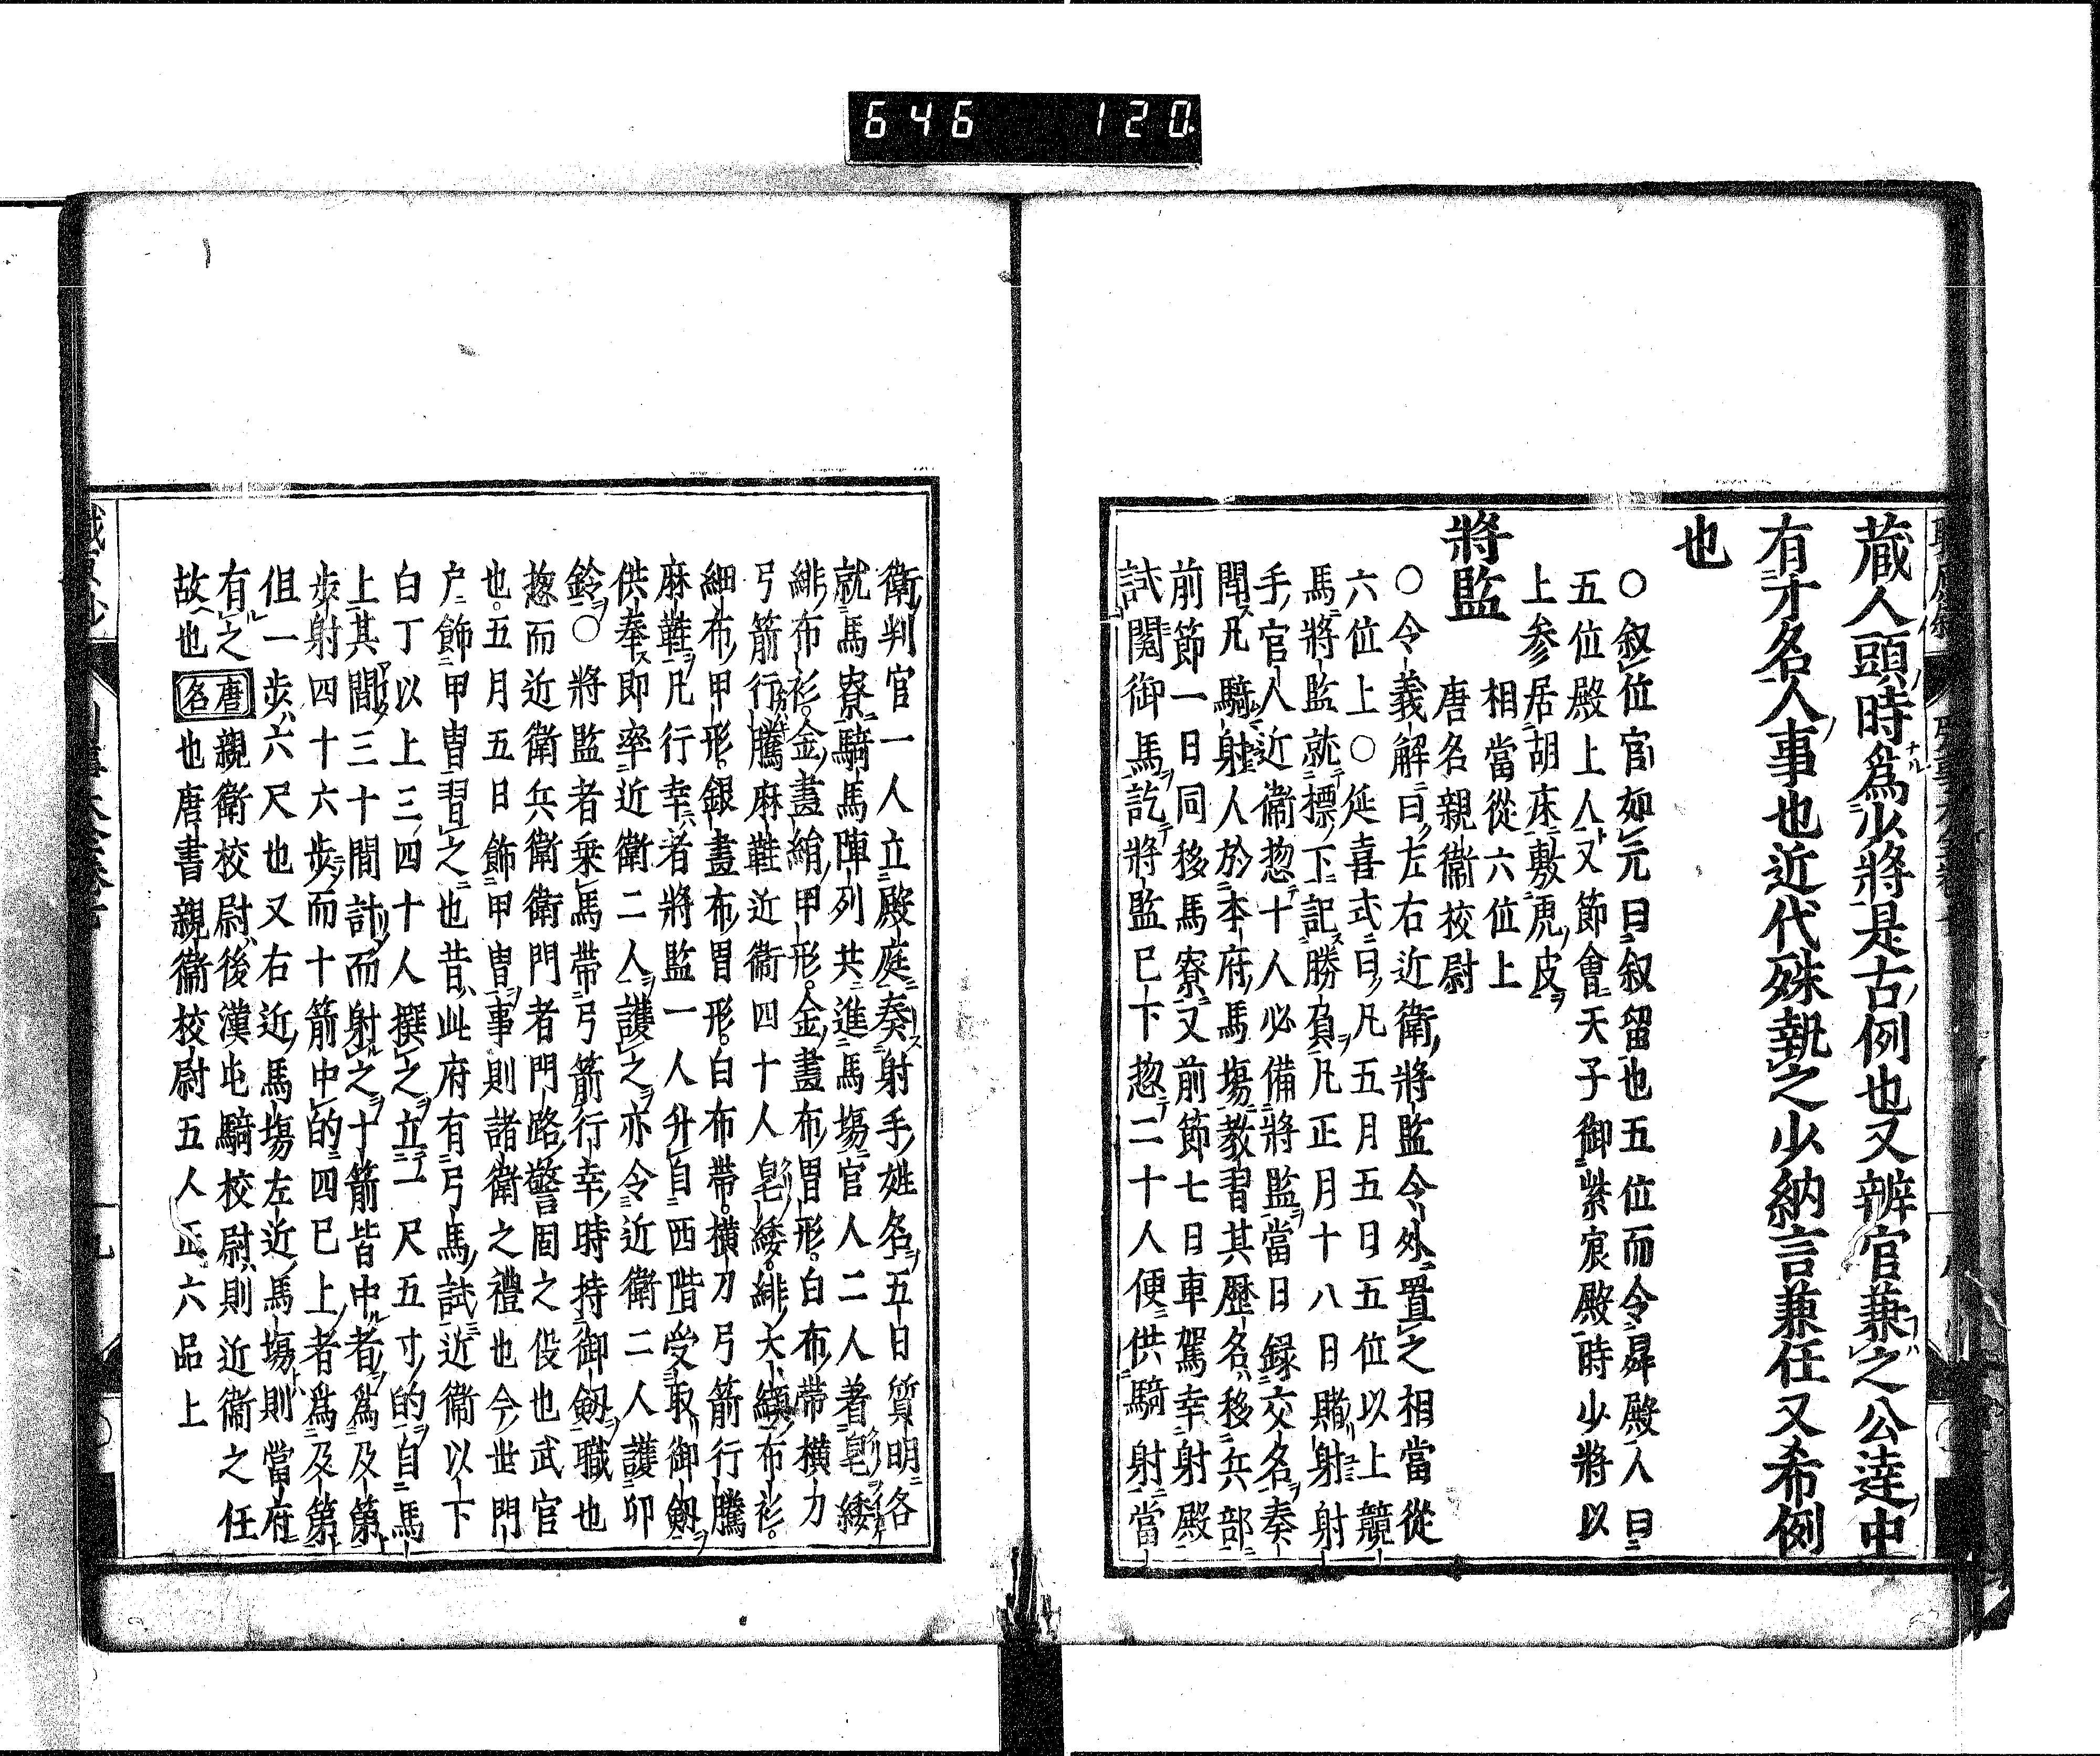 646 120
蔵人頭時爲少將是古例也又辨官兼之公達中
有才名人事也近代殊執之少納言兼任又希例
也
○叙位官如元曰叙留也五位而令昇殿人曰
五位殿上人又節會天子御紫宸殿時少將以
上参居胡床敷虎皮
將監
相當從六位上
唐名親衞校尉
○令義解曰左右近衛將監令外置之相當從
六位上○延喜式曰凡五月五日五位以上競
馬將監就標下記勝負凡正月十八日賭射射
手官人近衞惣十人必備將監當日録交名奏
聞凡騎射人於本府馬塲教習其歷名移兵部
前節一日同移馬寮又前節七日車駕幸射殿
試閲御馬訖將監已下惣二十人便供騎射當
衛判官一人立殿庭奏射手姓名五日質明各
就馬寮騎馬陣列共進馬塲官人二人著皂緌
緋布衫金畫絹甲形金畫布冑形白布帶横刀
弓箭行騰麻鞋近衞四十人皂緌緋大纈布衫
細布甲形銀畫布冑形白布帶横刀弓箭行騰
麻鞋凡行幸者將監一人升自西階受取御劔
供奉即率近衛二人護之亦令近衛二人護印
鈴○將監者乗馬帶弓箭行幸時持御劔職也
惣而近衛兵衛衛門者門路警固之役也武官
也五月五日飾甲冑事則諸衛之禮也今世門
户飾甲冑習之也昔此府有弓馬試近衞以下
白丁以上三四十人撰之立一尺五寸的自馬
上其間三十間計而射之十箭皆中者爲及第
歩射四十六歩而十箭中的四巳上者爲及第
但一歩六尺也又右近馬塲左近馬塲則當府
有之唐親衛校尉後漢屯騎校尉則近衞之任
故也名也唐書親衞校尉五人正六品上